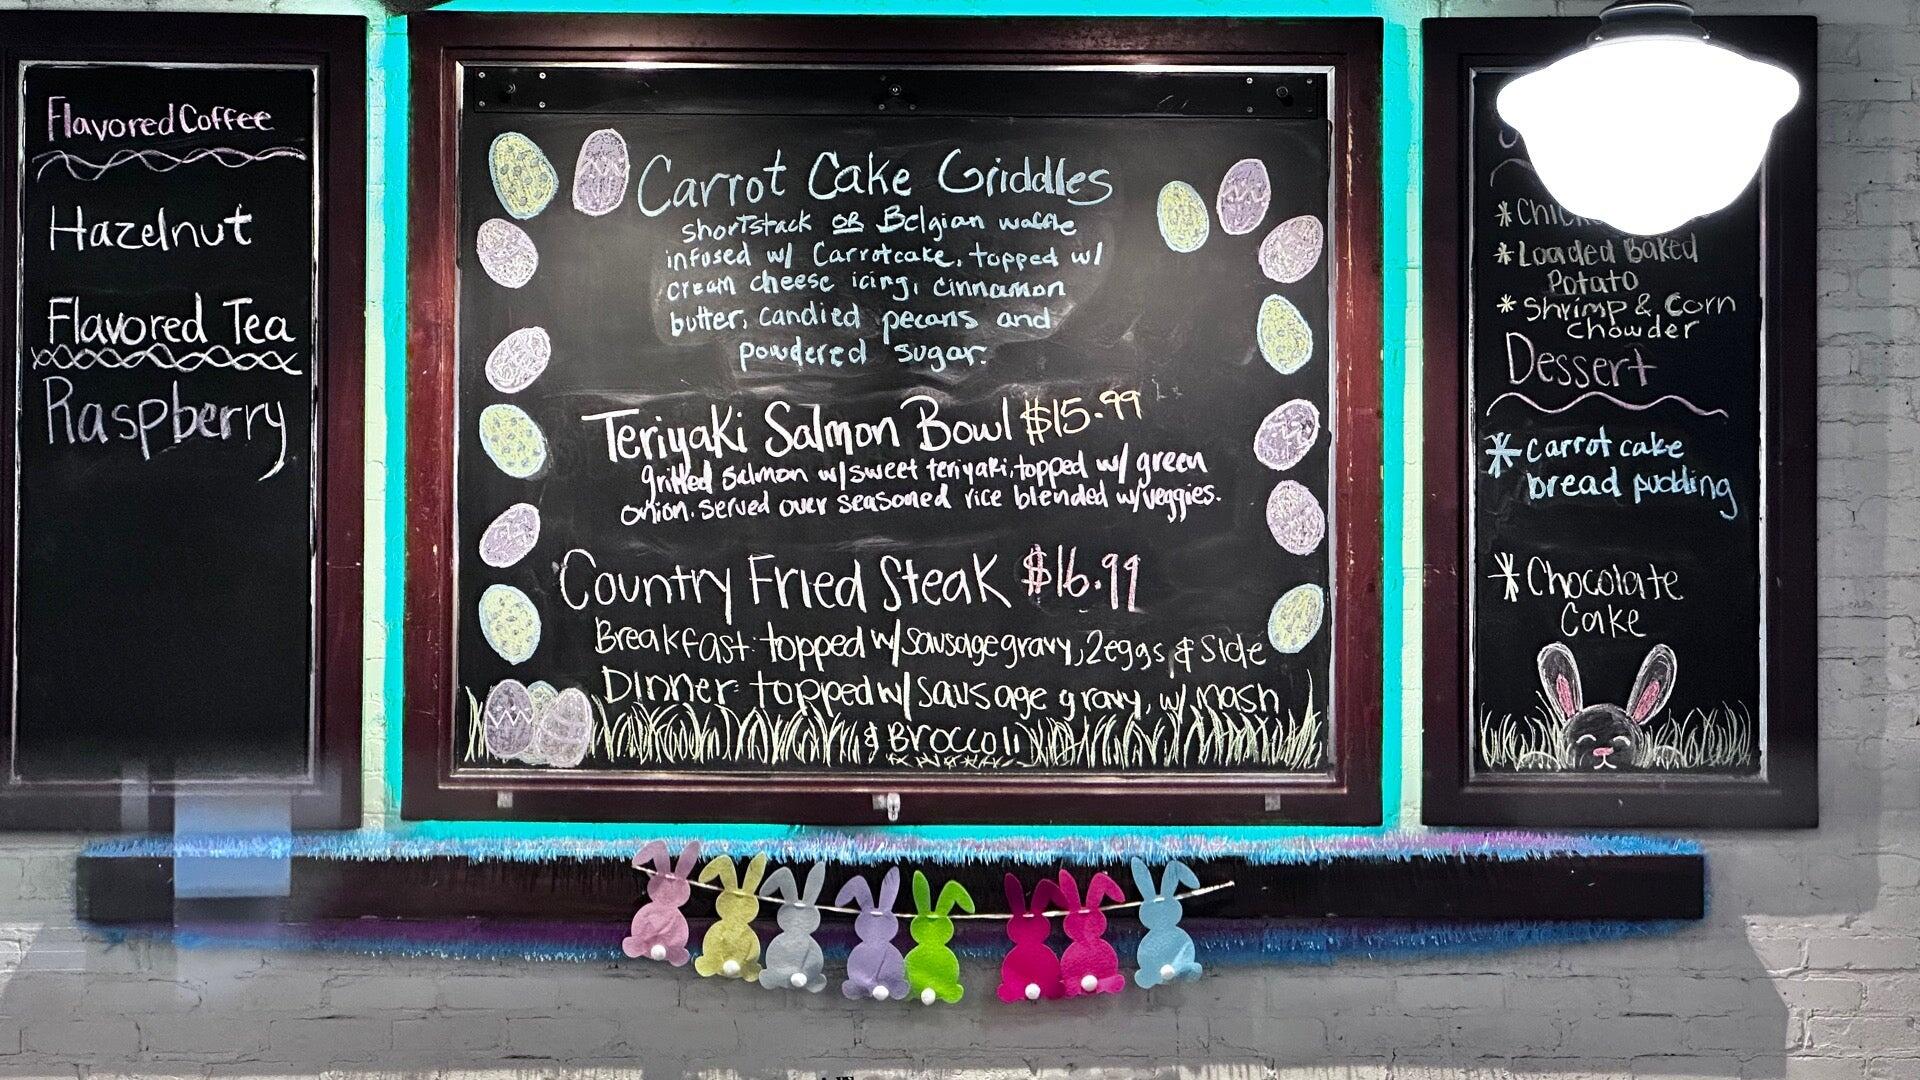 Flavored Coffee
Hazelnut
Flavored Tea
Raspberry
Carrot Cake Griddles
shortstack OR Belgian waffle
infused w/ Carrotcake, topped w/
cream cheese icing, cinnamon
butter, candied pecans and
powdered sugar.
Teriyaki Salmon Bowl $15.99
grilled salmon w/sweet teriyaki, topped w/ green
onion. served over seasoned rice blended w/veggies.
Country Fried Steak $16.99
Breakfast: topped w/sausage gravy, 2 eggs & side
Dinner: topped w/ sausage gravy, w/ mash
& Broccoli
* Loaded Baked
Potato
* Shrimp & Corn
Chowder
Dessert
* Carrot cake
bread pudding
* Chocolate
Cake